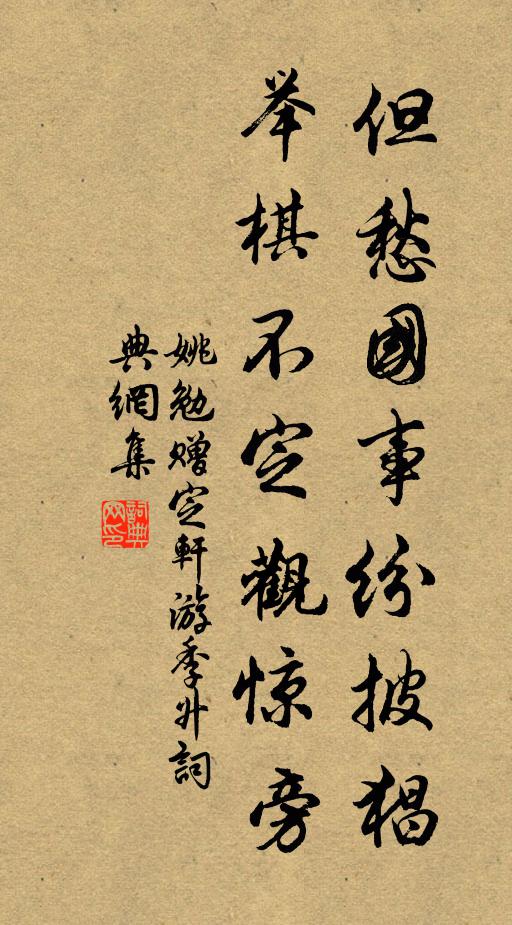 但愁國事纷披猖
举棋不定觀惊旁
姚勉赠定軒游季升詞
典網集
詞典网印